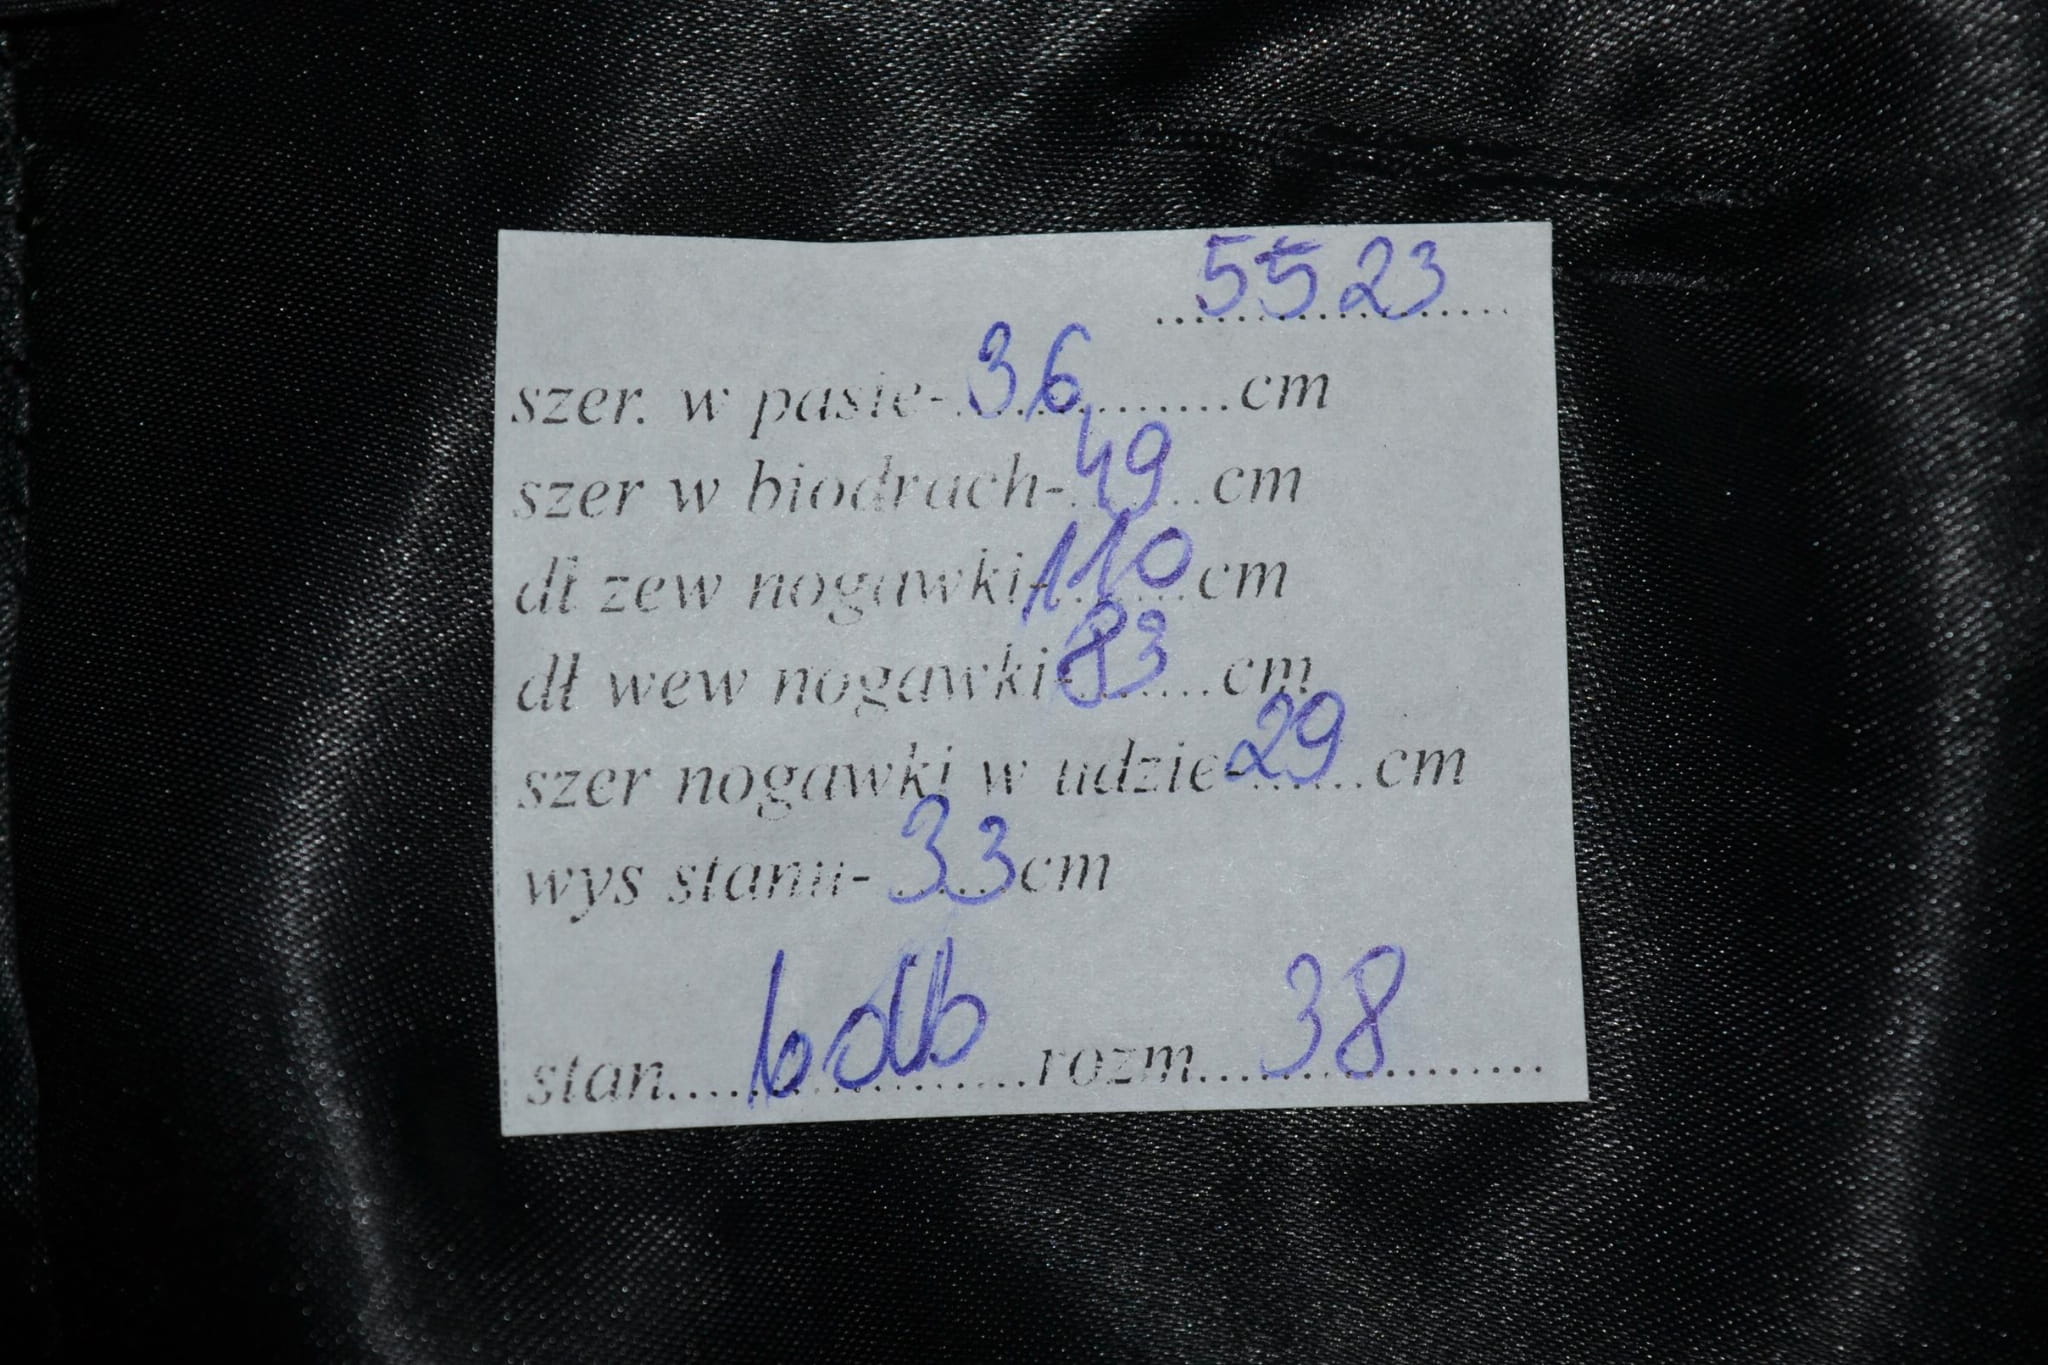 5523
szer. w pasie- 36 cm
szer w biodrach- 49 cm
dł zew nogawki- 110 cm
dł wew nogawki- 83 cm
szer nogawki w udzie- 29 cm
wys stanu- 33 cm
stan bdb rozm 38